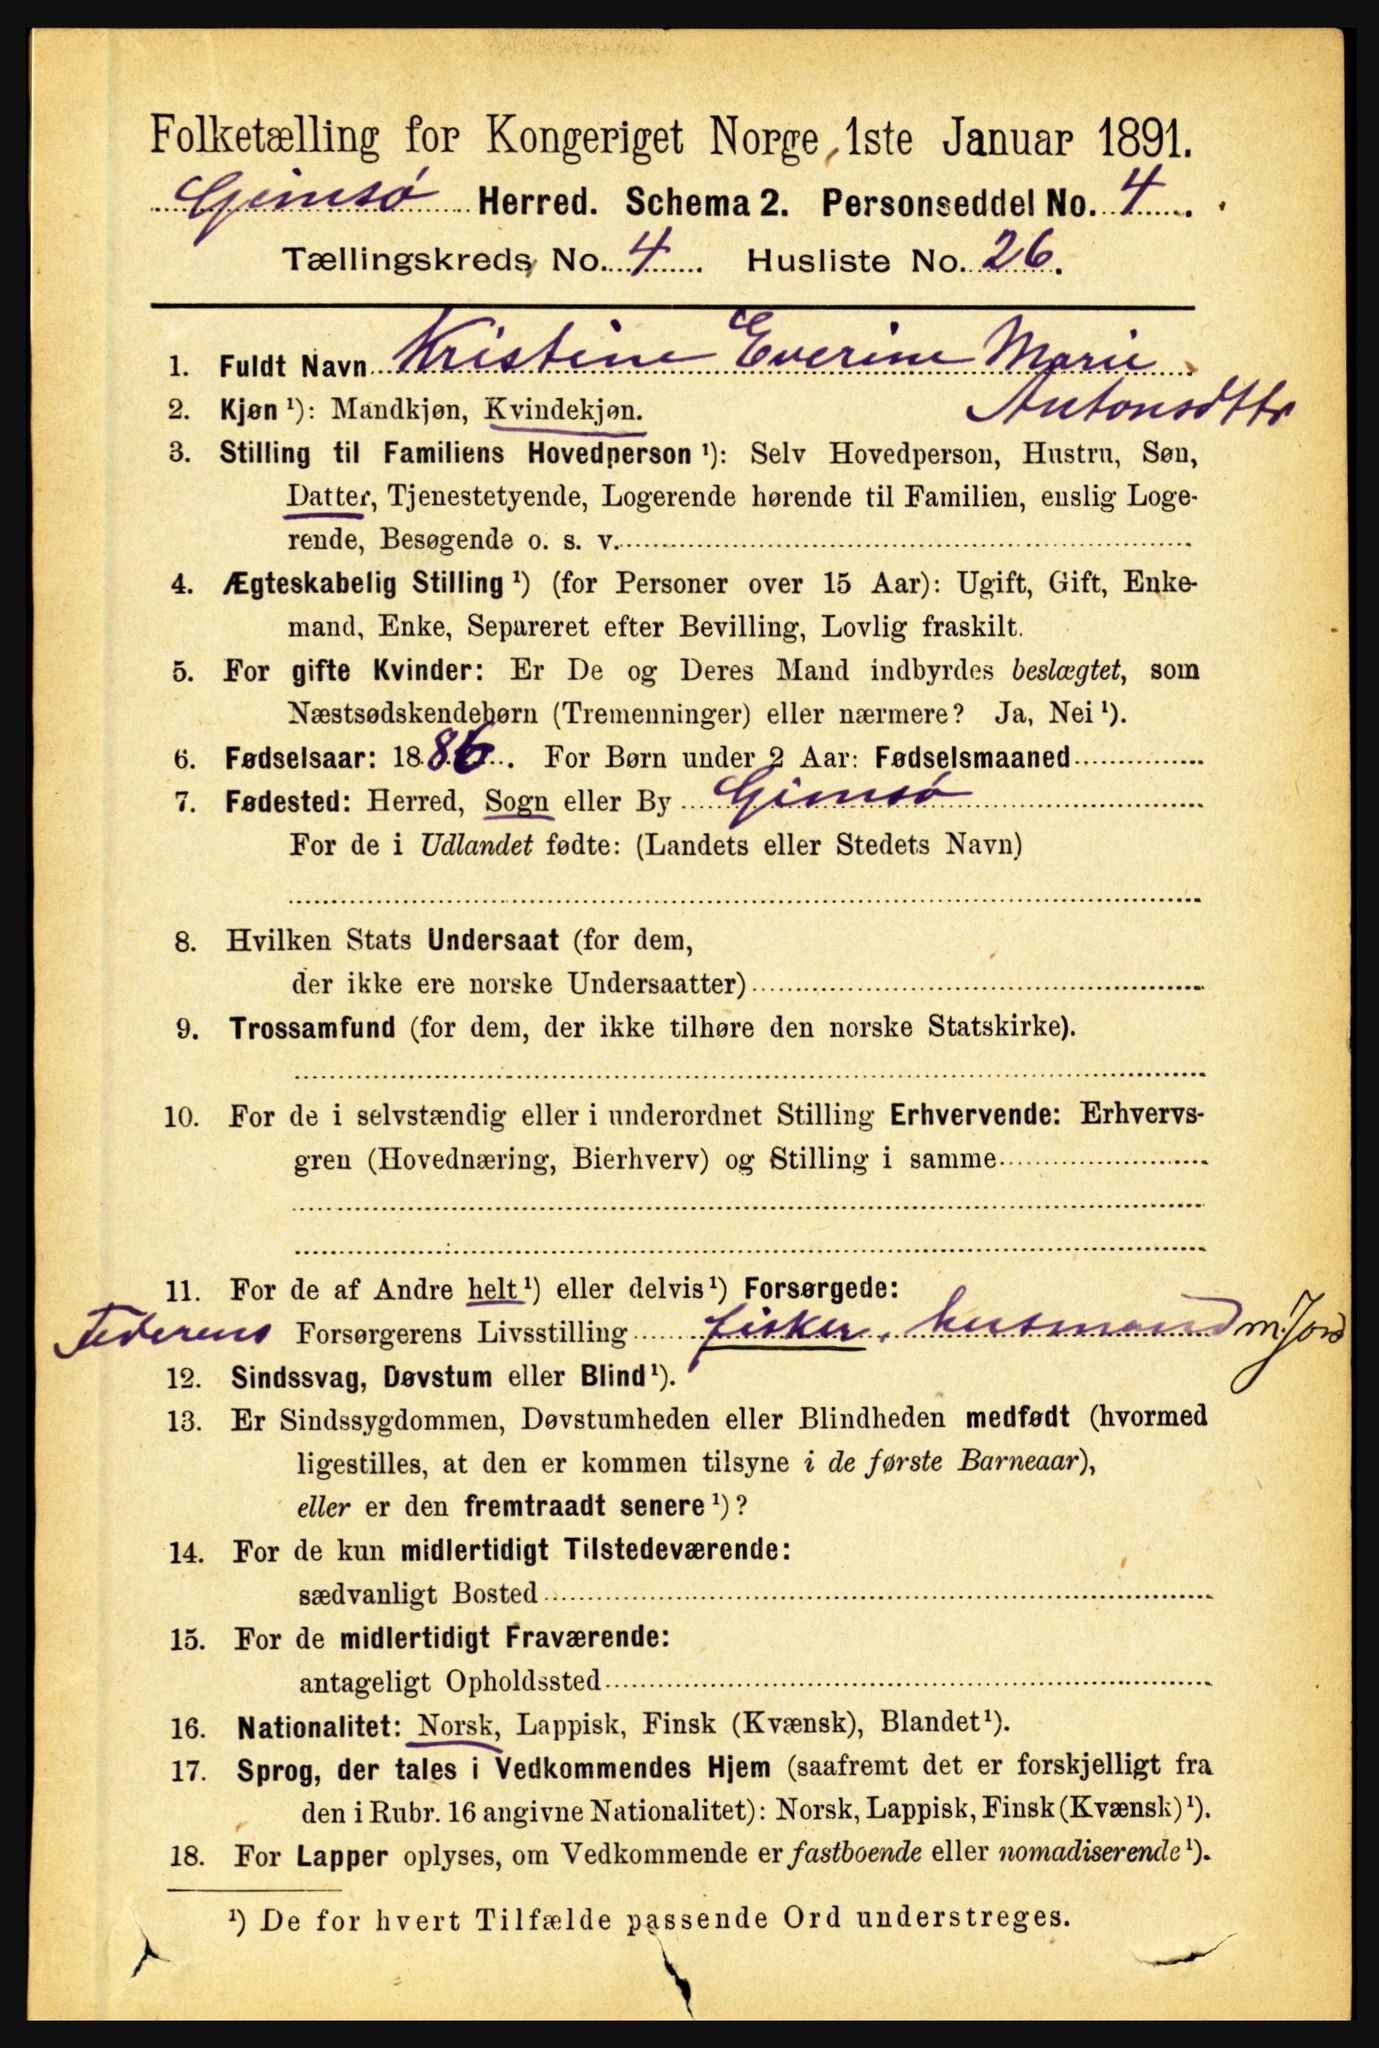 Folketælling for Kongeriget Norge 1ste Januar 1891.
Gimsø Herred. Schema 2. Personseddel No. 4
Tællingskreds No. 4 Husliste No. 26.
1. Fuldt Navn Kristine Everine Marie
Antonsdtr
2. Kjøn ¹): Mandkjøn, Kvindekjøn.
3. Stilling til Familiens Hovedperson ¹): Selv Hovedperson, Hustru, Søn,
Datter, Tjenestetyende, Logerende hørende til Familien, enslig Loge-
rende, Besøgende o. s. v.
4. Ægteskabelig Stilling ¹) (for Personer over 15 Aar): Ugift, Gift, Enke-
mand, Enke, Separeret efter Bevilling, Lovlig fraskilt.
5. For gifte Kvinder: Er De og Deres Mand indbyrdes beslægtet, som
Næstsødskendebørn (Tremenninger) eller nærmere? Ja, Nei ¹).
6. Fødselsaar: 1886. For Børn under 2 Aar: Fødselsmaaned
7. Fødested: Herred, Sogn eller By Gimsø
For de i Udlandet fødte: (Landets eller Stedets Navn)
8. Hvilken Stats Undersaat (for dem,
der ikke ere norske Undersaatter)
9. Trossamfund (for dem, der ikke tilhøre den norske Statskirke).
10. For de i selvstændig eller i underordnet Stilling Erhvervende: Erhvervs-
gren (Hovednæring, Bierhverv) og Stilling i samme
11. For de af Andre helt ¹) eller delvis ¹) Forsørgede:
Federens Forsørgerens Livsstilling fisker, husmand m. Jord
12. Sindssvag, Døvstum eller Blind ¹).
13. Er Sindssygdommen, Døvstumheden eller Blindheden medfødt (hvormed
ligestilles, at den er kommen tilsyne i de første Barneaar),
eller er den fremtraadt senere ¹)?
14. For de kun midlertidigt Tilstedeværende:
sædvanligt Bosted
15. For de midlertidigt Fraværende:
antageligt Opholdssted
16. Nationalitet: Norsk, Lappisk, Finsk (Kvænsk), Blandet ¹).
17. Sprog, der tales i Vedkommendes Hjem (saafremt det er forskjelligt fra
den i Rubr. 16 angivne Nationalitet): Norsk, Lappisk, Finsk (Kvænsk) ¹).
18. For Lapper oplyses, om Vedkommende er fastboende eller nomadiserende ¹).
¹) De for hvert Tilfælde passende Ord understreges.